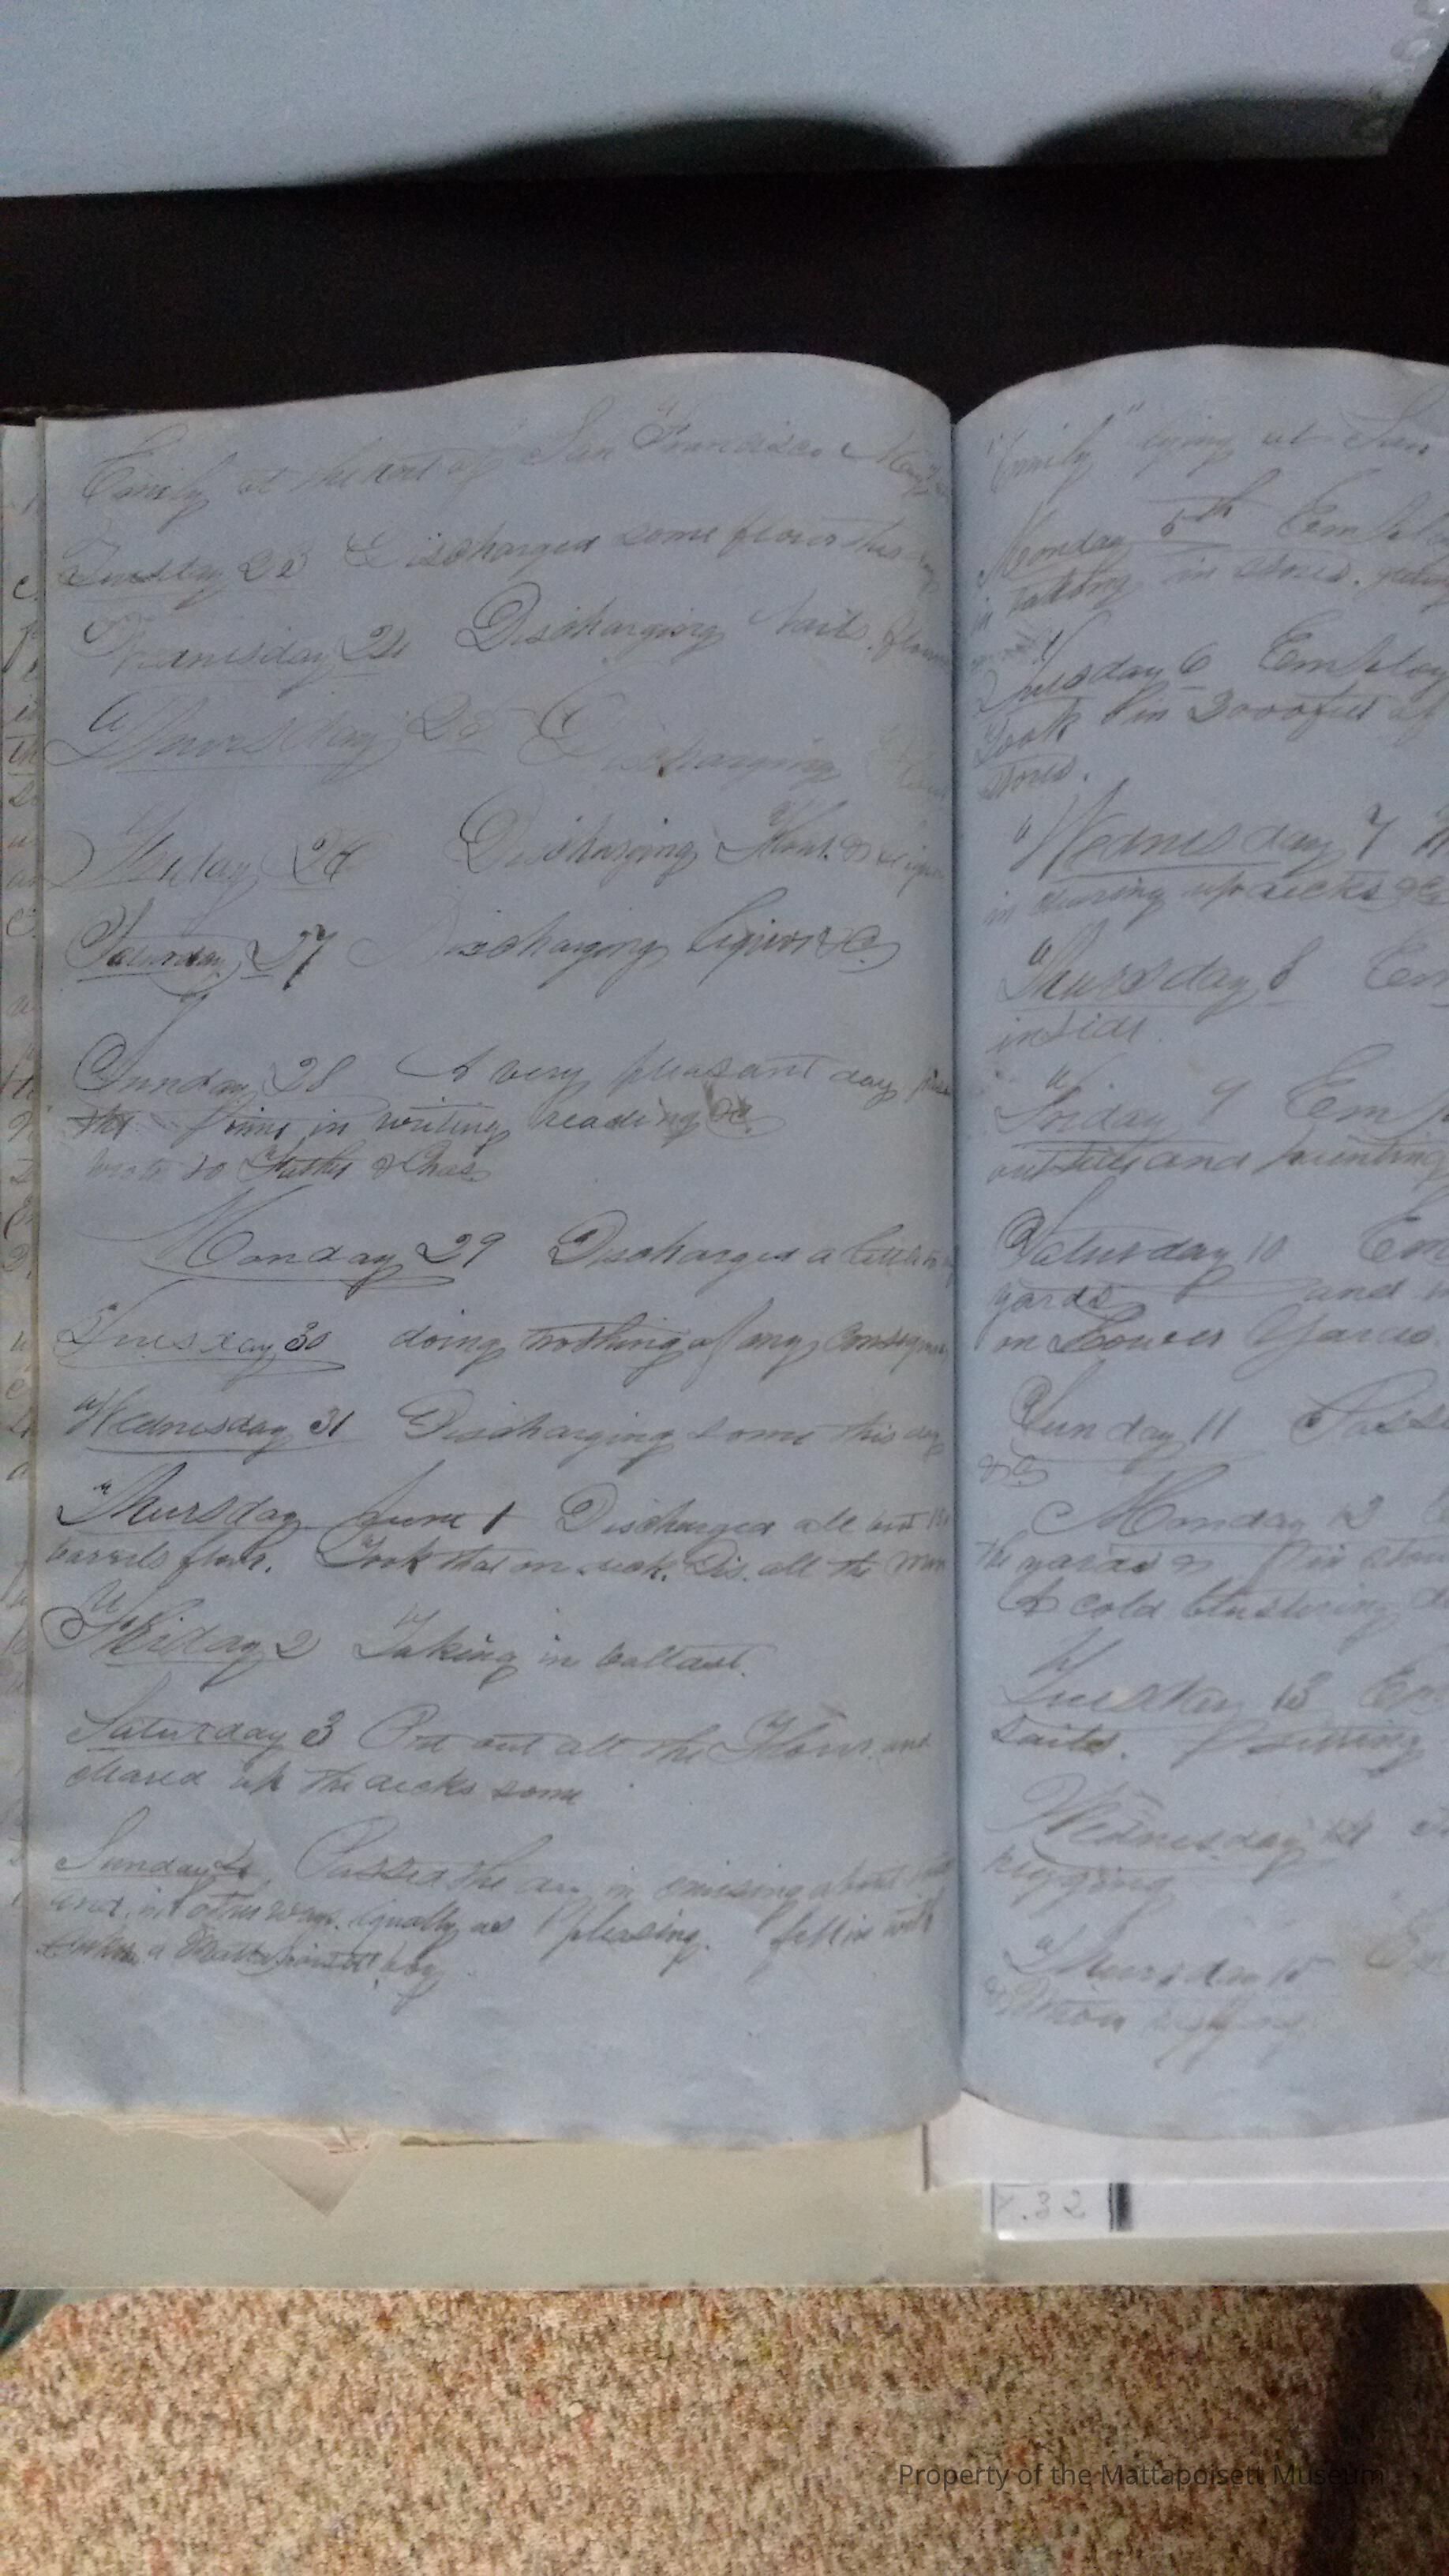 Emily at the Port of San Francisco May
Tuesday 23 Discharged some flour this day
Wednesday 24 Discharging Nails, flour
Thursday 25 Discharging
Friday 26 Discharging Flour &
Saturday 27 Discharging liquors &c.
Sunday 28 A very pleasant day
the time in writing reading &c.
wrote to Father & Chas.
Monday 29 Discharged a little
Tuesday 30 doing nothing of any conseq
Wednesday 31 Discharging some this day
Thursday June 1 Discharged all but
barrels flour. Took that on deck. Dis. all the
Friday 2 Taking in ballast.
Saturday 3 Put out all the Flour, and
cleared up the decks some
Sunday 4, Passed the day in cruising about
and in other ways equally as pleasing. fell in with
a Mattapoisett boy
"Emily" lying at San
Monday 5th Employ
in taking in stores.
Tuesday 6 Employ
Took in 3000 feet of
stores.
Wednesday 7
in clearing up decks &c
Thursday 8 Em
inside.
Friday 9 Em
outside and painting
Saturday 10 Em
yards and
on Lower Yards.
Sunday 11 Pass
&c
Monday 12
the yards &
A cold blustering d
Tuesday 13 Em
sails.
Wednesday 14
rigging
Thursday 15
rigging
7.32
Property of the Mattapoisett Museum